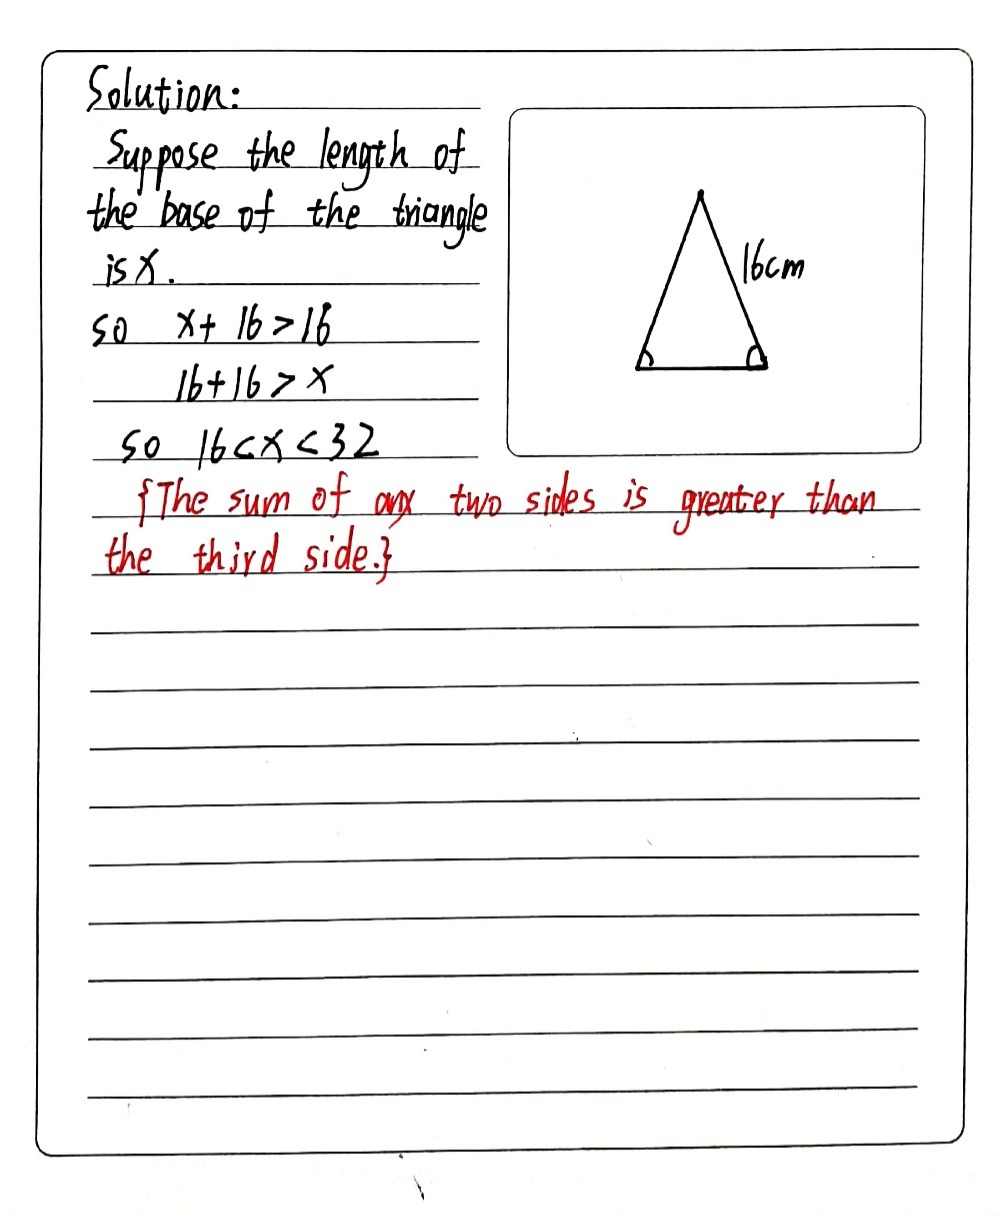 Solution:
Suppose the length of
the base of the triangle
is x.
so x+ 16>16
16+16>x
so 16<x<32
{The sum of any two sides is greater than
the third side.}
16cm